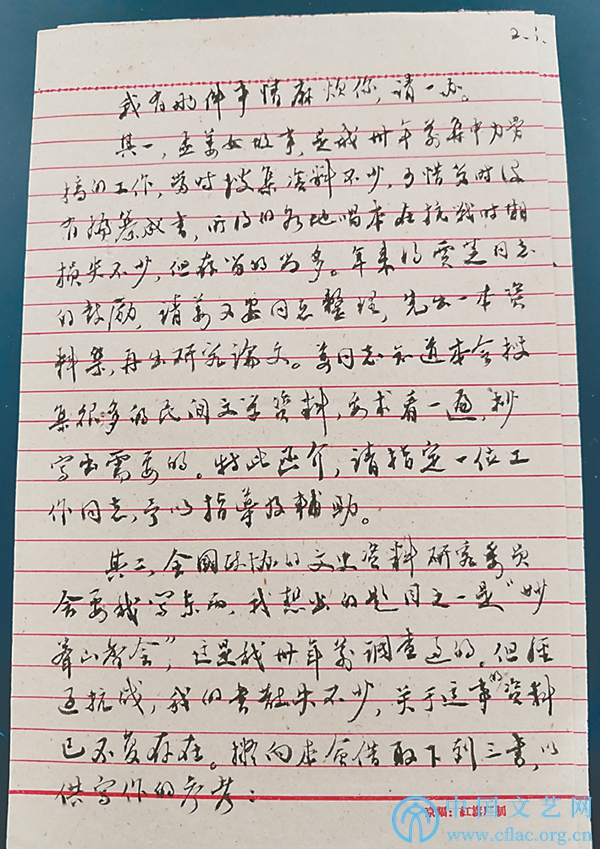 2.
我有两件事情麻烦你,请一办。
其一,孟姜女故事,是我卅年前集中力量
搞的工作,当时搜集资料不少,可惜当时没
有编纂成书,所得的各地唱本在抗战时期
损失不少,但存留的尚多。年来得贾芝同志
的鼓励,请姜又安同志整理,先出一本资
料集,再出研究论文。姜同志知道本会搜
集很多的民间文学资料,要求看一遍,抄
写出需要的。特此函介,请指定一位工
作同志,予以指导及辅助。
其二,全国政协的文史资料研究委员
会要我写东西,我想出的题目之一是“妙
峰山香会”,这是我卅年前调查过的。但经
过抗战,我的书散失不少,关于这事的资料
已不复存在。拟向本会借取下列三书,以
供写作的参考:
中国文艺网
www.cflac.org.cn